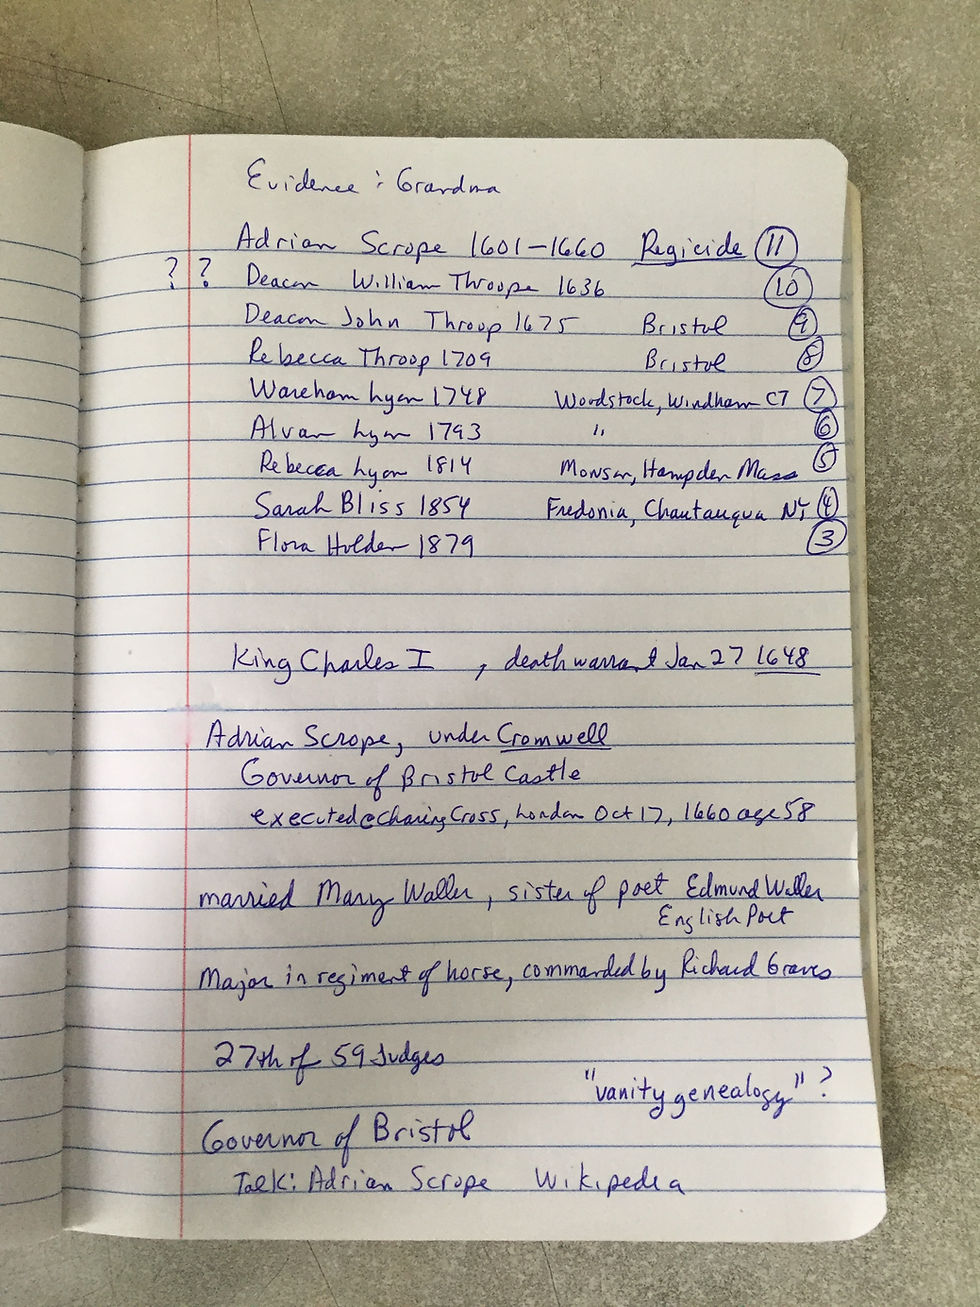 Evidence : Grandma
Adrian Scrope 1601-1660 Regicide 11
? ? Deacon William Throope 1636 10
Deacon John Throop 1675 Bristol 9
Rebecca Throop 1709 Bristol 8
Wareham Lyon 1748 Woodstock, Windham CT 7
Alvan Lyon 1793 " 6
Rebecca Lyon 1814 Monson, Hampden Mass 5
Sarah Bliss 1854 Fredonia, Chautauqua NY 4
Flora Holden 1879 3
King Charles I , death warrant Jan 27 1648
Adrian Scrope, under Cromwell
Governor of Bristol Castle
executed @ Charing Cross, London Oct 17, 1660 age 58
married Mary Waller, sister of poet Edmund Waller
English Poet
Major in regiment of horse, commanded by Richard Graves
27th of 59 Judges
"vanity genealogy" ?
Governor of Bristol
Talk: Adrian Scrope Wikipedia